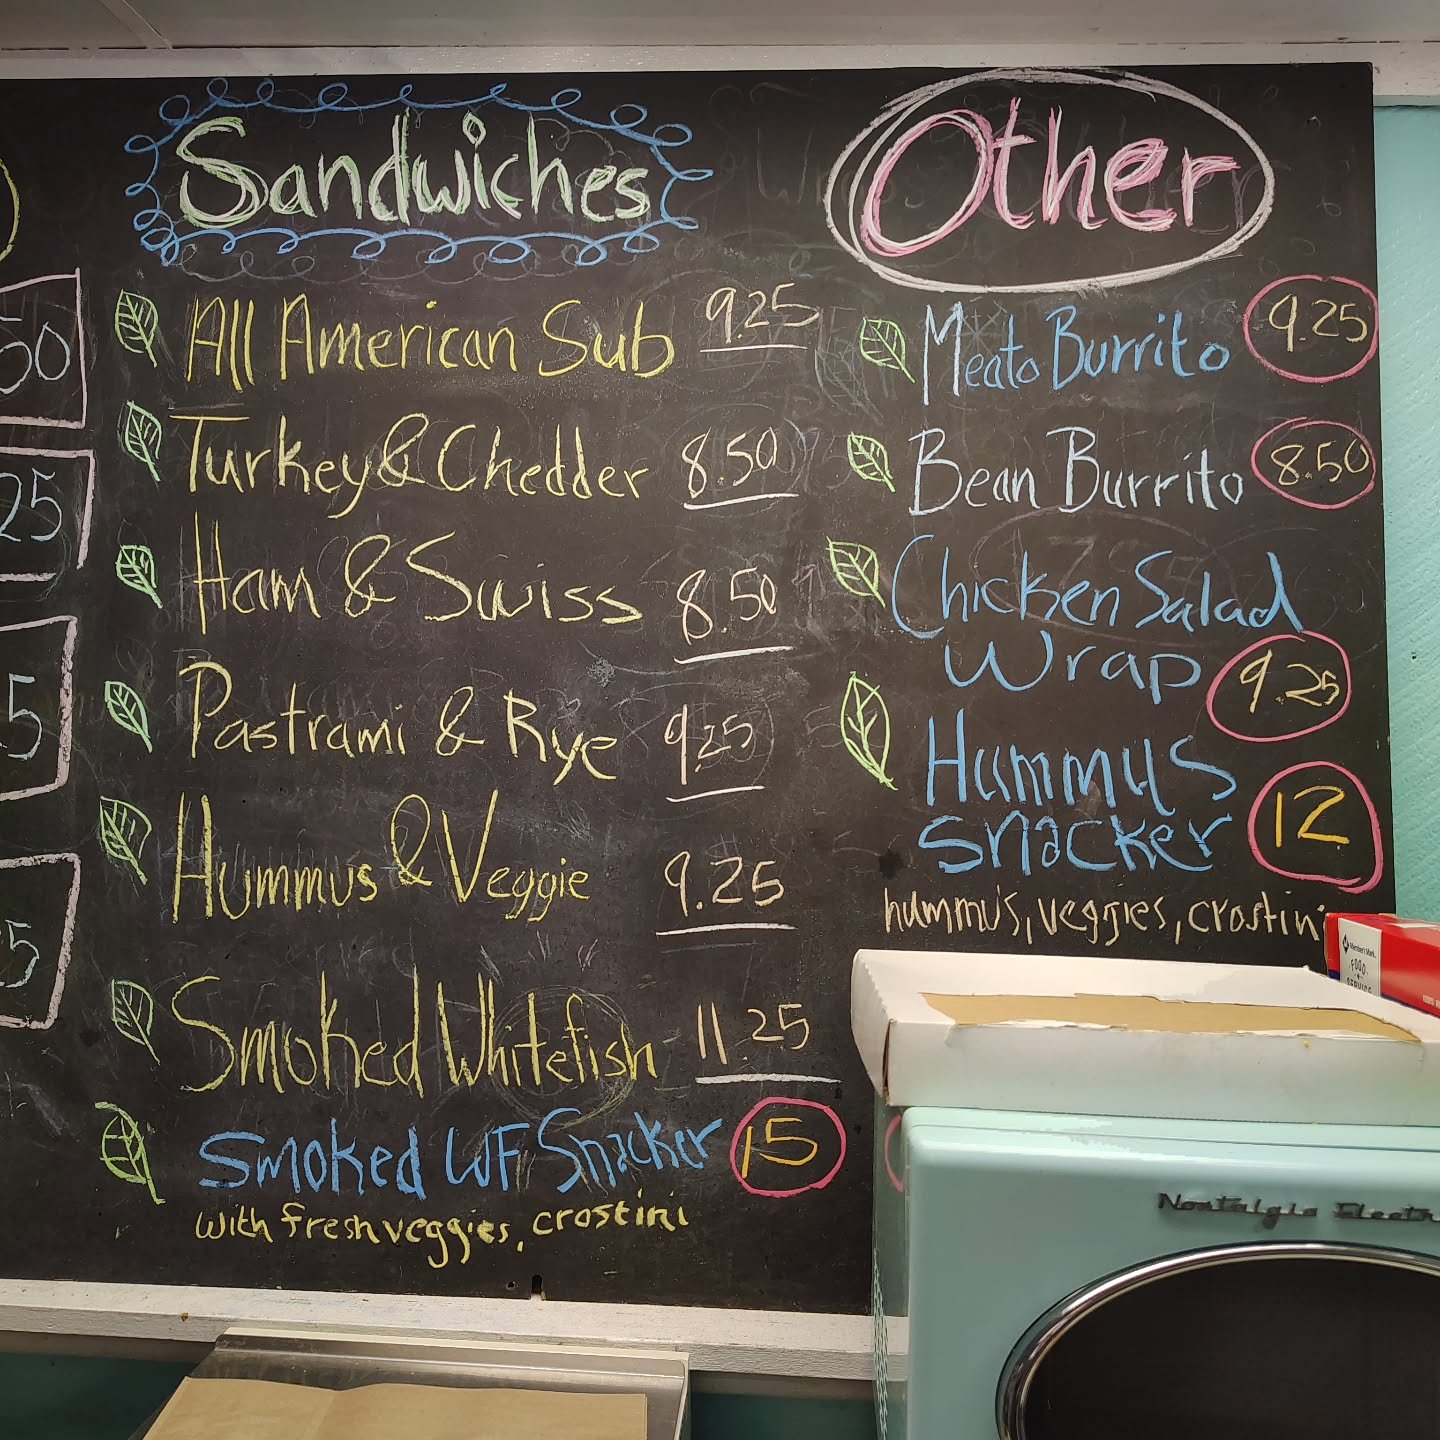 Sandwiches
All American Sub 9.25
Turkey & Chedder 8.50
Ham & Swiss 8.50
Pastrami & Rye 9.25
Hummus & Veggie 9.25
Smoked Whitefish 11.25
Smoked WF Snacker 15
with fresh veggies, crostini
Other
Meato Burrito 9.25
Bean Burrito 8.50
Chicken Salad
Wrap 9.25
Hummus
Snacker 12
hummus, veggies, crostini
50
25
5
5
Member's Mark
FOOD
SERVICE
Nostalgia Electr